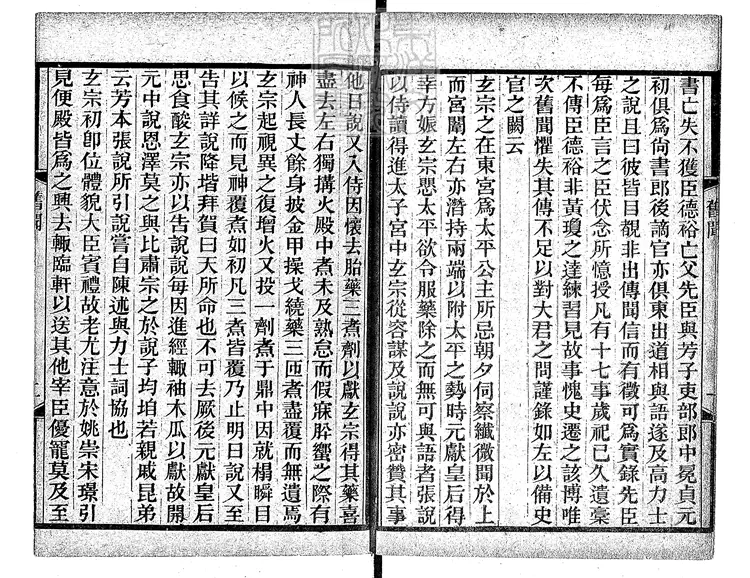 書亡失不獲臣德裕亡父先臣與芳子吏部郎中冕貞元
初俱爲尚書郎後謫官亦俱東出道相與語遂及高力士
之說且曰彼皆目覩非出傳聞信而有徵可爲實錄先臣
每爲臣言之臣伏念所憶授凡有十七事歲祀已久遺稾
不傳臣德裕非黃瓊之達練習見故事愧史遷之該博唯
次舊聞懼失其傳不足以對大君之問謹錄如左以備史
官之闕云
玄宗之在東宮爲太平公主所忌朝夕伺察纖微聞於上
而宮闈左右亦潛持兩端以附太平之勢時元獻皇后得
幸方娠玄宗懼太平欲令服藥除之而無可與語者張說
以侍讀得進太子宮中玄宗從容謀及說說亦密贊其事
他日說又入侍因懷去胎藥三煮劑以獻玄宗得其藥喜
盡去左右獨搆火殿中煮未及熟怠而假寐肸蠁之際有
神人長丈餘身披金甲操戈繞藥三匝煮盡覆而無遺焉
玄宗起視異之復增火又投一劑煮于鼎中因就榻瞬目
以候之而見神覆煮如初凡三煮皆覆乃止明日說又至
告其詳說降堦拜賀曰天所命也不可去厥後元獻皇后
思食酸玄宗亦以告說說每因進經輒袖木瓜以獻故開
元中說恩澤莫之與比肅宗之於說子均垍若親戚昆弟
云芳本張說所引說嘗自陳述與力士詞協也
玄宗初卽位體貌大臣賓禮故老尤注意於姚崇宋璟引
見便殿皆爲之興去輒臨軒以送其他宰臣優寵莫及至
舊聞
舊聞